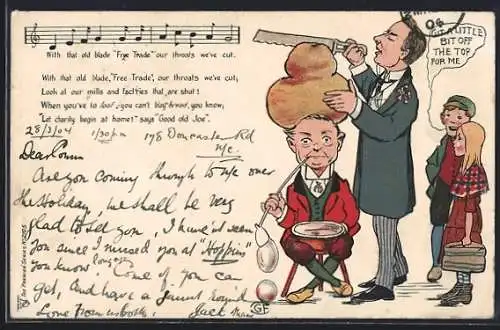 With that old blade "Free Trade" our throats we've cut.
With that old blade, "Free Trade", our throats we've cut;
Look at our mills and factries that are shut!
When you've to loaf, you can't buy bread, you know;
"Let charity begin at home!" says "Good old Joe".
28/3/04 1/30 p.m 178 Doncaster Rd
N/c.
Dear Conn
Are you coming through to N/c over
the Holiday, we shall be very
glad to see you, I have'nt seen
you since I missed you at "Hoppins"
you know longago Come if you can
get, and have a jaunt round
Love from us both. Jack
06
CUT A LITTLE
BIT OFF
THE TOP
FOR ME